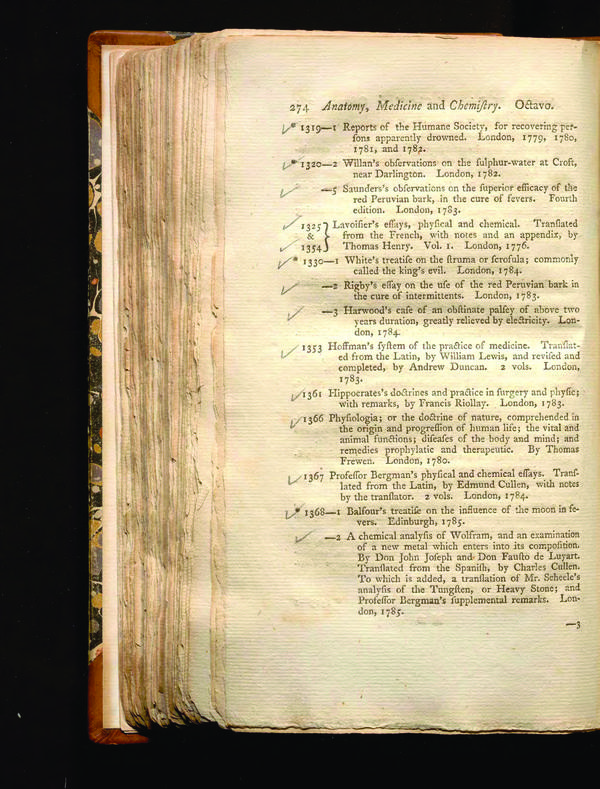 274 Anatomy, Medicine and Chemiſtry. Octavo.
* 1319—1 Reports of the Humane Society, for recovering per-
ſons apparently drowned. London, 1779, 1780,
1781, and 1782.
* 1320—2 Willan's obſervations on the ſulphur-water at Croft,
near Darlington. London, 1782.
—5 Saunders's obſervations on the ſuperior efficacy of the
red Peruvian bark, in the cure of fevers. Fourth
edition. London, 1783.
1325 Lavoiſier's eſſays, phyſical and chemical. Tranſlated
& } from the French, with notes and an appendix, by
1354 Thomas Henry. Vol. 1. London, 1776.
* 1330—1 White's treatiſe on the ſtruma or ſcrofula; commonly
called the king's evil. London, 1784.
—2 Rigby's eſſay on the uſe of the red Peruvian bark in
the cure of intermittents. London, 1783.
—3 Harwood's caſe of an obſtinate palſey of above two
years duration, greatly relieved by electricity. Lon-
don, 1784.
1353 Hoffman's ſyſtem of the practice of medicine. Tranſlat-
ed from the Latin, by William Lewis, and reviſed and
completed, by Andrew Duncan. 2 vols. London,
1783.
1361 Hippocrates's doctrines and practice in ſurgery and phyſic;
with remarks, by Francis Riollay. London, 1783.
1366 Phyſiologia; or the doctrine of nature, comprehended in
the origin and progreſſion of human life; the vital and
animal functions; diſeaſes of the body and mind; and
remedies prophylatic and therapeutic. By Thomas
Frewen. London, 1780.
1367 Profeſſor Bergman's phyſical and chemical eſſays. Tranſ-
lated from the Latin, by Edmund Cullen, with notes
by the tranſlator. 2 vols. London, 1784.
* 1368—1 Balfour's treatiſe on the influence of the moon in fe-
vers. Edinburgh, 1785.
—2 A chemical analyſis of Wolfram, and an examination
of a new metal which enters into its compoſition.
By Don John Joſeph and Don Fauſto de Luyart.
Tranſlated from the Spaniſh, by Charles Cullen.
To which is added, a tranſlation of Mr. Scheele's
analyſis of the Tungſten, or Heavy Stone; and
Profeſſor Bergman's ſupplemental remarks. Lon-
don, 1785.
—3